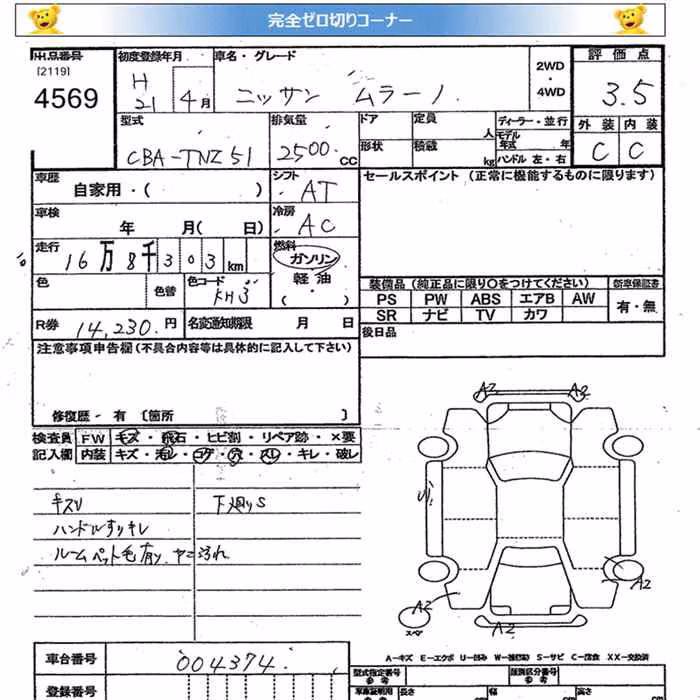 完全ゼロ切りコーナー
出品番号 初度登録年月 車名・グレード 2WD・4WD 評価点
[2119]
4569 H21 4月 ニッサン ムラーノ 3.5
型式 排気量 ドア 定員 人 ディーラー・並行 外装 内装
モデル年式 年
CBA-TNZ51 2500 CC 形状 積載 kg ハンドル 左・右 C C
車歴 自家用・( ) シフト AT セールスポイント (正常に機能するものに限ります)
車検 年 月( 日) 冷房 AC
走行 16万8千303km 燃料 ガソリン
色 色替 色コード KH3 軽油 ・( ) 装備品(純正品に限り○をつけてください) 新車保証書
PS PW ABS エアB AW 有・無
R券 14,230円 名変通知期限 月 日 SR ナビ TV カワ
注意事項申告欄(不具合内容等は具体的に記入して下さい) 後日品
修復歴・有 [箇所 ]
検査員 FW キズ・飛石・ヒビ割・リペア跡・×要
記入欄 内装 キズ・汚レ・コゲ・穴・スレ・キレ・破レ
キスリ 下廻りS
ハンドルすりキレ
ルームペット毛有り ヤニ汚れ
A2 A2
A2
A2
スペア
A2
A-キズ E-エクボ U-凹み S-サビ C-腐食 XX-交換済
車台番号 004374
登録番号 型式指定番号 参考 類別区分番号 参考
長さ cm 幅 cm 高さ cm